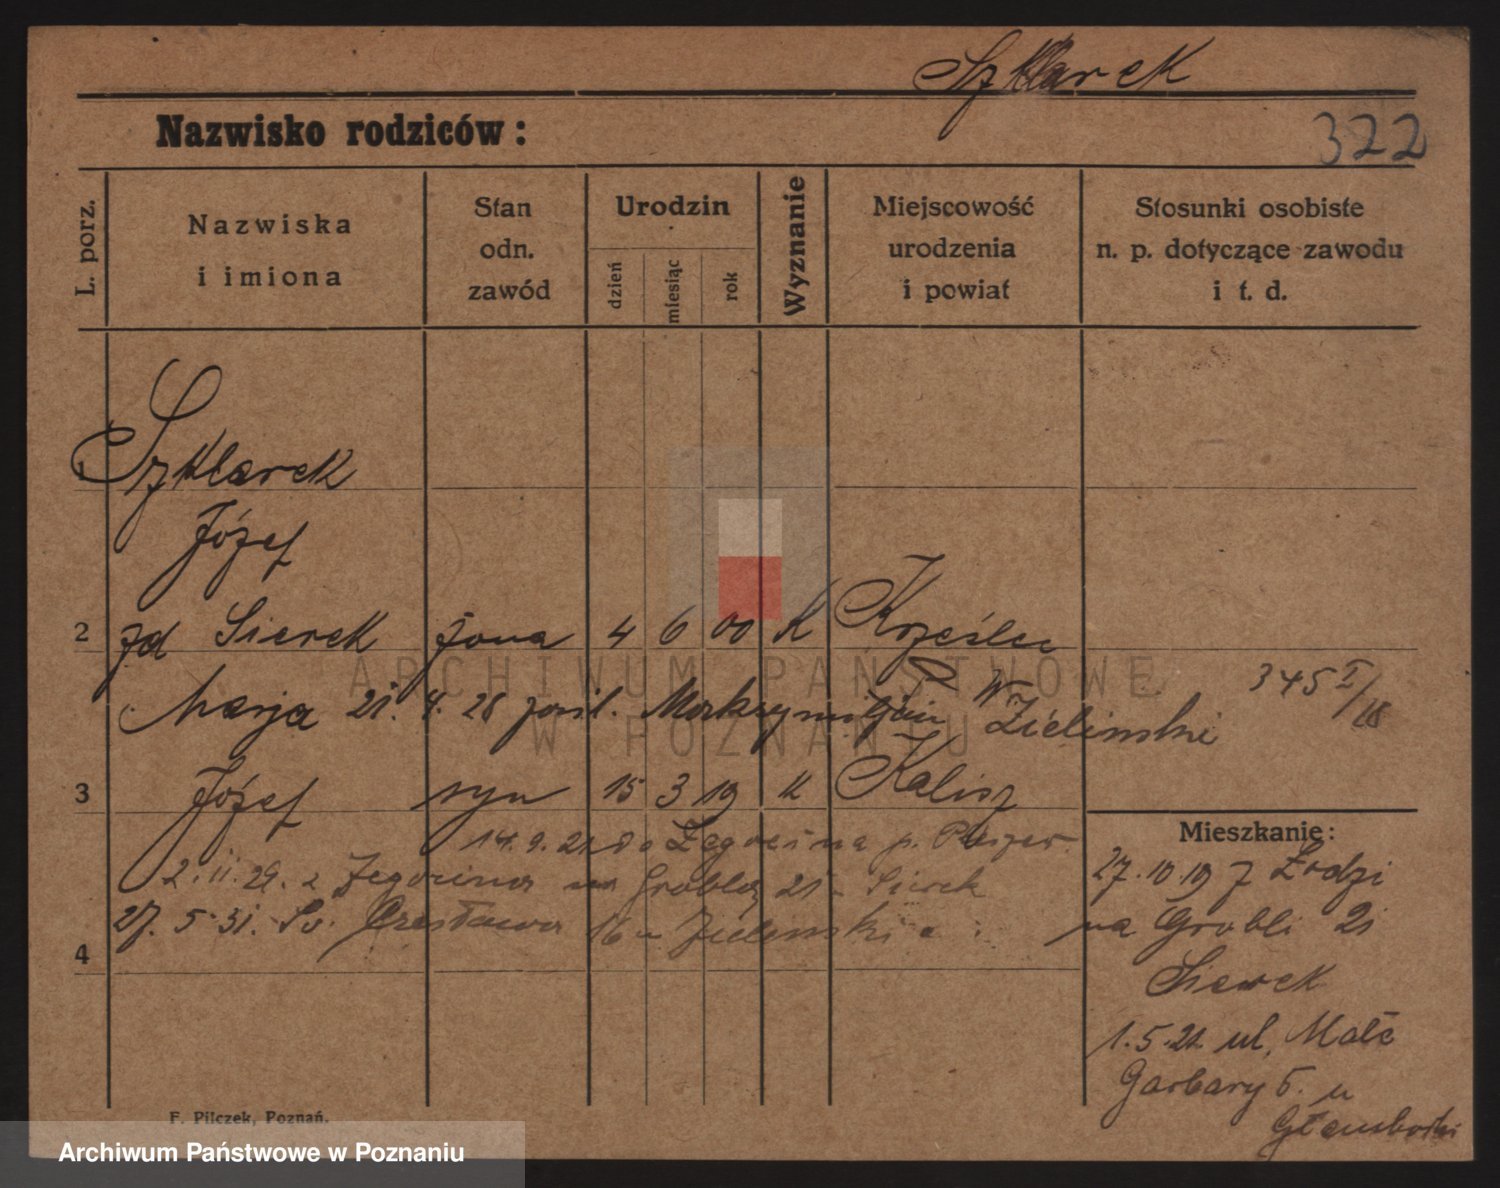 Szklarek
Nazwisko rodziców:
322
L. porz.
Nazwiska
i imiona
Stan
odn.
zawód
Urodzin
dzień
miesiąc
rok
Wyznanie
Miejscowość
urodzenia
i powiat
Stosunki osobiste
n. p. dotyczące zawodu
i t. d.
1 Szklarek
Józef
2 zd Sierek żona 4 6 00 K
Marja 21. 4. 28 Zieliński
345 I/18
3 Józef syn 15 3 19 K Kalisz
14.9.21 do
2.11.29. z na Groblę 21 Sierek
27. 5. 31. Św. Czesława 16 u
4
Mieszkanie:
27.10.19 z Łodzi
na Grobli 21
Sierek
1.5.21. ul. Małe
Garbary 5. u
F. Pilczek, Poznań.
ARCHIWUM PAŃSTWOWE
W POZNANIU
Archiwum Państwowe w Poznaniu